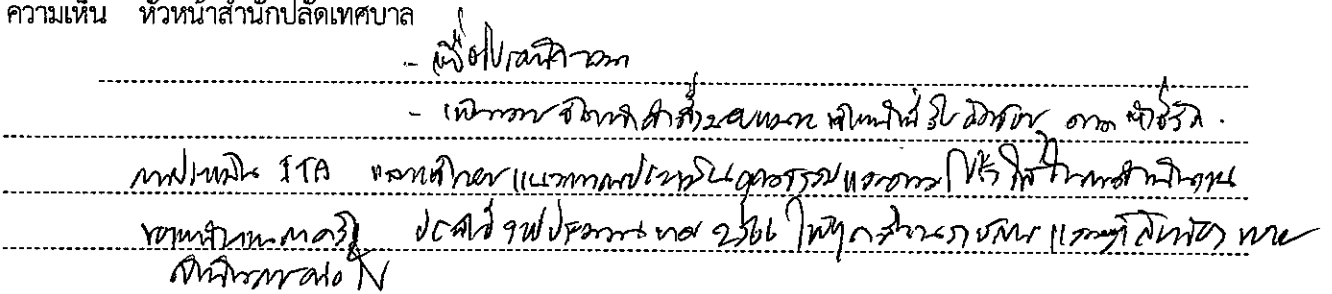 ความเห็น หัวหน้าสำนักปลัดเทศบาล
- เพื่อโปรดพิจารณา
- เห็นควร จัดทำคำสั่งมอบหมาย เจ้าหน้าที่รับผิดชอบ ตาม ตัวชี้วัด
การประเมิน ITA และแนวทางการประเมินคุณธรรมและความโปร่งใสในการดำเนินงาน
ของหน่วยงานภาครัฐ ประจำปี งบประมาณ พ.ศ. 2566 ให้ทุกส่วนราชการ
ดำเนินการต่อไป